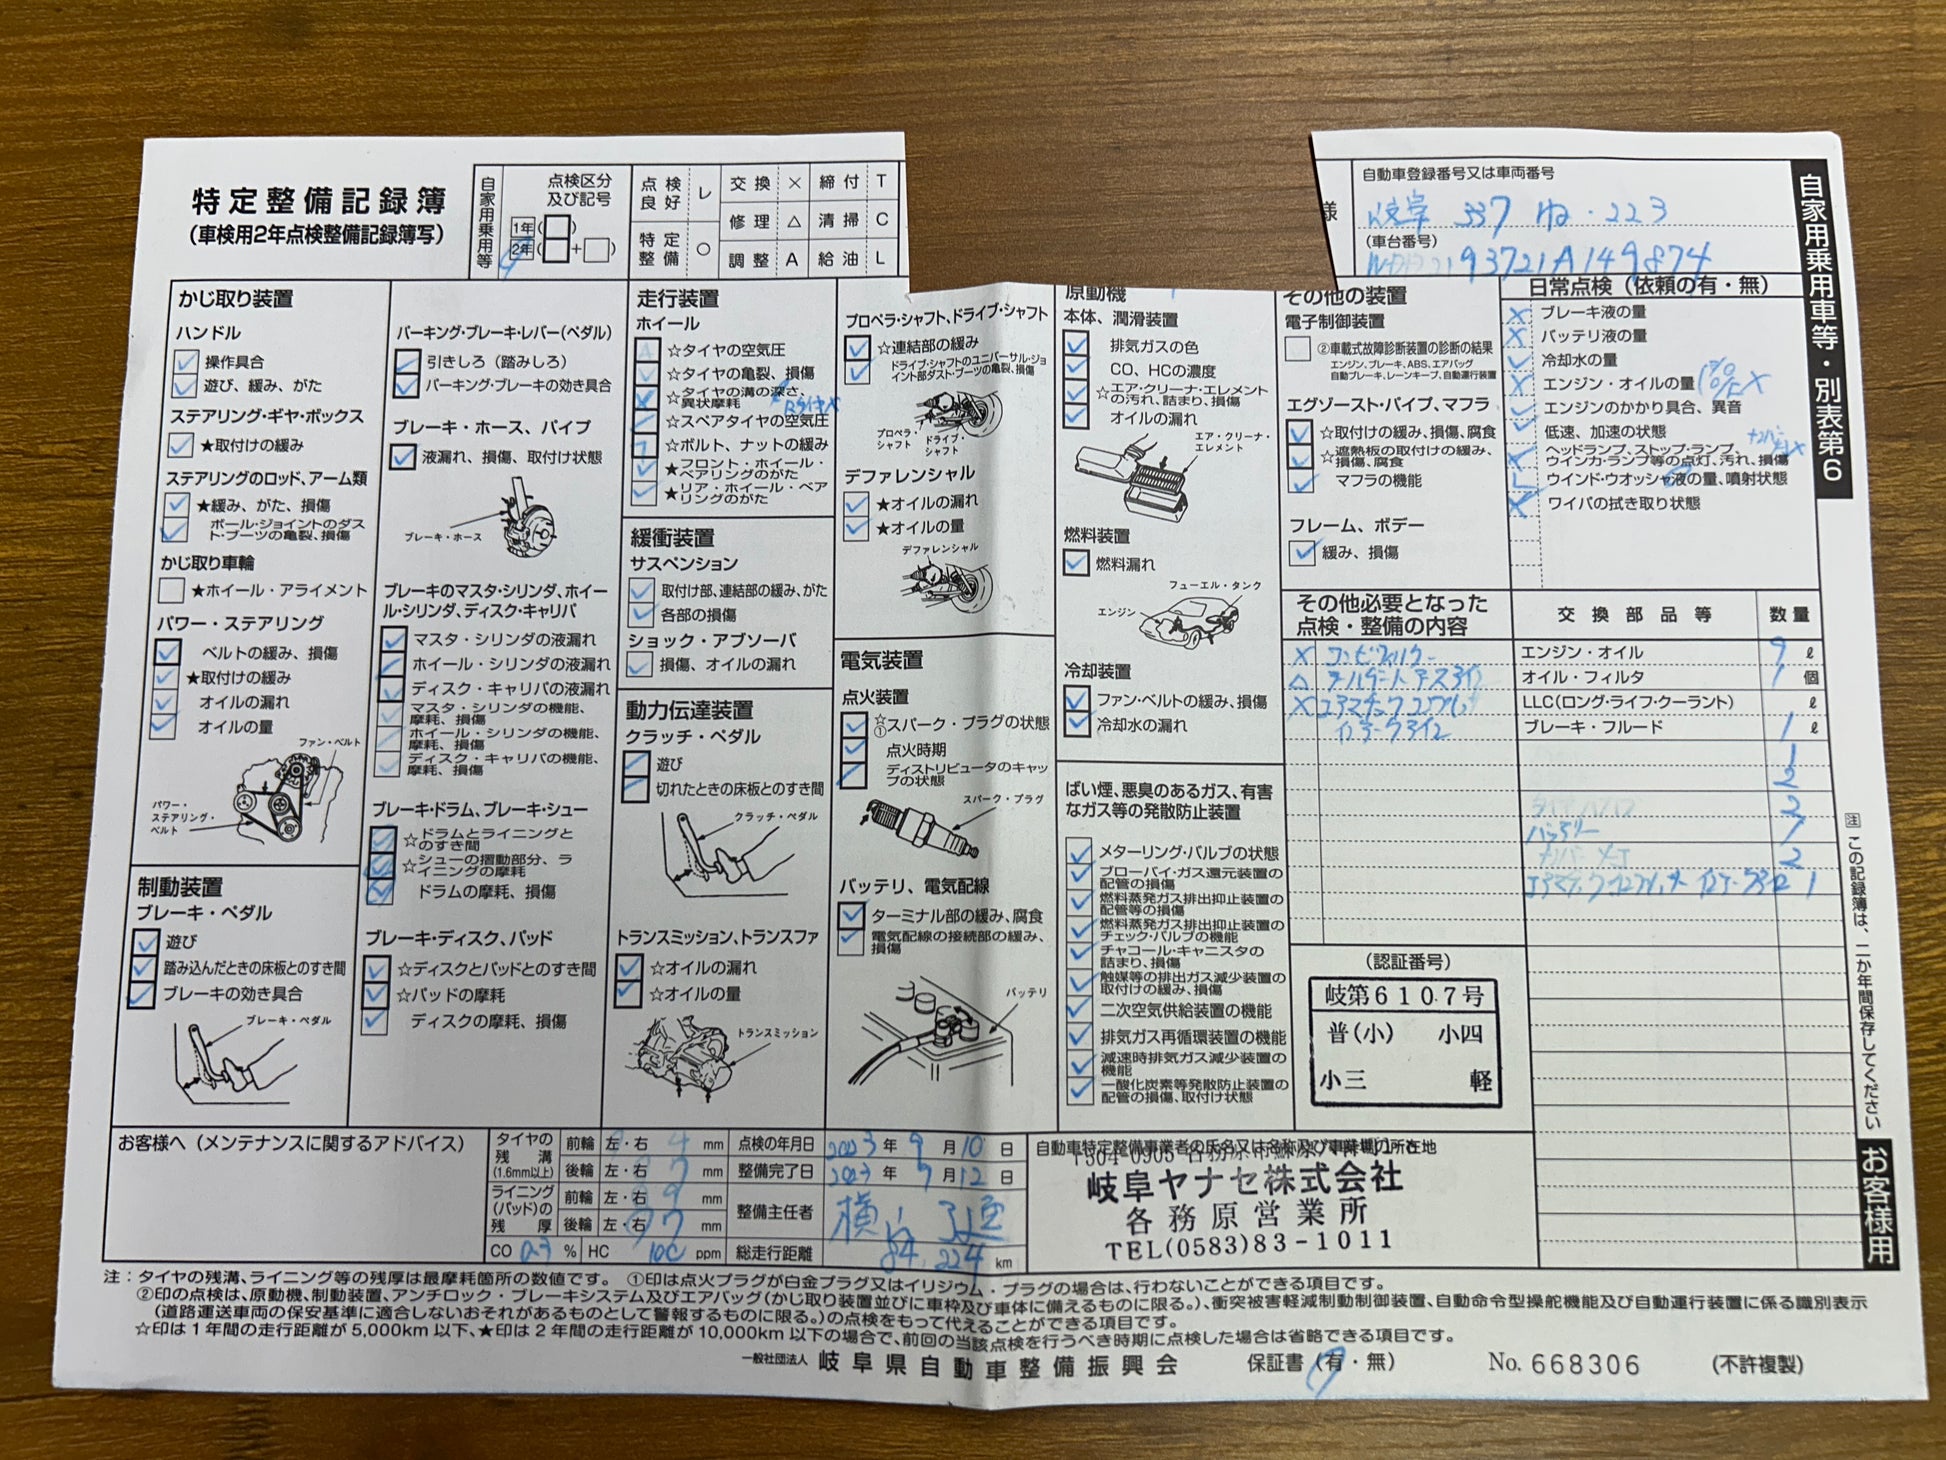 特定整備記録簿
(車検用2年点検整備記録簿写)
自家用乗用等
点検区分及び記号
1年( )
2年( + )
点検良好 レ
特定整備 ○
交換 ×
修理 △
調整 A
締付 T
清掃 C
給油 L
様
自動車登録番号又は車両番号
岐阜 337 ね・223
(車台番号)
自家用乗用車等・別表第6
かじ取り装置
ハンドル
操作具合
遊び、緩み、がた
ステアリング・ギヤ・ボックス
★取付けの緩み
ステアリングのロッド、アーム類
★緩み、がた、損傷
ボール・ジョイントのダスト・ブーツの亀裂、損傷
かじ取り車輪
★ホイール・アライメント
パワー・ステアリング
ベルトの緩み、損傷
★取付けの緩み
オイルの漏れ
オイルの量
ファン・ベルト
パワー・ステアリング・ベルト
制動装置
ブレーキ・ペダル
遊び
踏み込んだときの床板とのすき間
ブレーキの効き具合
ブレーキ・ペダル
パーキング・ブレーキ・レバー(ペダル)
引きしろ(踏みしろ)
パーキング・ブレーキの効き具合
ブレーキ・ホース、パイプ
液漏れ、損傷、取付け状態
ブレーキ・ホース
ブレーキのマスタ・シリンダ、ホイール・シリンダ、ディスク・キャリパ
マスタ・シリンダの液漏れ
ホイール・シリンダの液漏れ
ディスク・キャリパの液漏れ
マスタ・シリンダの機能、摩耗、損傷
ホイール・シリンダの機能、摩耗、損傷
ディスク・キャリパの機能、摩耗、損傷
ブレーキ・ドラム、ブレーキ・シュー
☆ドラムとライニングとのすき間
☆シューの摺動部分、ライニングの摩耗
ドラムの摩耗、損傷
ブレーキ・ディスク、パッド
☆ディスクとパッドとのすき間
☆パッドの摩耗
ディスクの摩耗、損傷
走行装置
ホイール
☆タイヤの空気圧
☆タイヤの亀裂、損傷
☆タイヤの溝の深さ、異状摩耗
☆スペアタイヤの空気圧
☆ボルト、ナットの緩み
★フロント・ホイール・ベアリングのがた
★リア・ホイール・ベアリングのがた
緩衝装置
サスペンション
取付け部、連結部の緩み、がた
各部の損傷
ショック・アブソーバ
損傷、オイルの漏れ
動力伝達装置
クラッチ・ペダル
遊び
切れたときの床板とのすき間
クラッチ・ペダル
トランスミッション、トランスファ
☆オイルの漏れ
☆オイルの量
トランスミッション
プロペラ・シャフト、ドライブ・シャフト
☆連結部の緩み
ドライブ・シャフトのユニバーサル・ジョイント部ダスト・ブーツの亀裂、損傷
プロペラ・シャフト
ドライブ・シャフト
デファレンシャル
★オイルの漏れ
★オイルの量
デファレンシャル
電気装置
点火装置
☆①スパーク・プラグの状態
点火時期
ディストリビュータのキャップの状態
スパーク・プラグ
バッテリ、電気配線
ターミナル部の緩み、腐食
電気配線の接続部の緩み、損傷
バッテリ
原動機
本体、潤滑装置
排気ガスの色
CO、HCの濃度
☆エア・クリーナ・エレメントの汚れ、詰まり、損傷
オイルの漏れ
エア・クリーナ・エレメント
燃料装置
燃料漏れ
フューエル・タンク
エンジン
冷却装置
ファン・ベルトの緩み、損傷
冷却水の漏れ
ばい煙、悪臭のあるガス、有害なガス等の発散防止装置
メターリング・バルブの状態
ブローバイ・ガス還元装置の配管の損傷
燃料蒸発ガス排出抑止装置の配管等の損傷
燃料蒸発ガス排出抑止装置のチェック・バルブの機能
チャコール・キャニスタの詰まり、損傷
触媒等の排出ガス減少装置の取付けの緩み、損傷
二次空気供給装置の機能
排気ガス再循環装置の機能
減速時排気ガス減少装置の機能
一酸化炭素等発散防止装置の配管の損傷、取付け状態
その他の装置
電子制御装置
②車載式故障診断装置の診断の結果
エンジン、ブレーキ、ABS、エアバッグ
自動ブレーキ、レーンキープ、自動運行装置
エグゾースト・パイプ、マフラ
☆取付けの緩み、損傷、腐食
☆遮熱板の取付けの緩み、損傷、腐食
マフラの機能
フレーム、ボデー
緩み、損傷
その他必要となった点検・整備の内容
(認証番号)
岐第6107号
普(小) 小四
小三 軽
日常点検(依頼の有・無)
ブレーキ液の量
バッテリ液の量
冷却水の量
エンジン・オイルの量
エンジンのかかり具合、異音
低速、加速の状態
ヘッドランプ、ストップ・ランプ、ウインカ・ランプ等の点灯、汚れ、損傷
ウインド・ウオッシャ液の量、噴射状態
ワイパの拭き取り状態
交換部品等 数量
エンジン・オイル 9 ℓ
オイル・フィルタ 1 個
LLC(ロング・ライフ・クーラント) ℓ
ブレーキ・フルード 1 ℓ
1
2
バッテリー 1
2
注 この記録簿は、二か年間保存してください
お客様用
お客様へ(メンテナンスに関するアドバイス)
タイヤの残溝(1.6mm以上) 前輪 左・右 4 mm
後輪 左・右 7 mm
ライニング(パッド)の残厚 前輪 左・右 9 mm
後輪 左・右 7 mm
CO % HC 100 ppm
点検の年月日 2023年9月10日
整備完了日 2023年9月12日
整備主任者
総走行距離 84,224 km
自動車特定整備事業者の氏名又は名称及び事業場の所在地
岐阜ヤナセ株式会社
各務原営業所
TEL(0583)83-1011
注:タイヤの残溝、ライニング等の残厚は最摩耗箇所の数値です。 ①印は点火プラグが白金プラグ又はイリジウム・プラグの場合は、行わないことができる項目です。
②印の点検は、原動機、制動装置、アンチロック・ブレーキシステム及びエアバッグ(かじ取り装置並びに車枠及び車体に備えるものに限る。)、衝突被害軽減制動制御装置、自動命令型操舵機能及び自動運行装置に係る識別表示
(道路運送車両の保安基準に適合しないおそれがあるものとして警報するものに限る。)の点検をもって代えることができる項目です。
☆印は1年間の走行距離が5,000km以下、★印は2年間の走行距離が10,000km以下の場合で、前回の当該点検を行うべき時期に点検した場合は省略できる項目です。
一般社団法人 岐阜県自動車整備振興会 保証書(有・無) No. 668306 (不許複製)